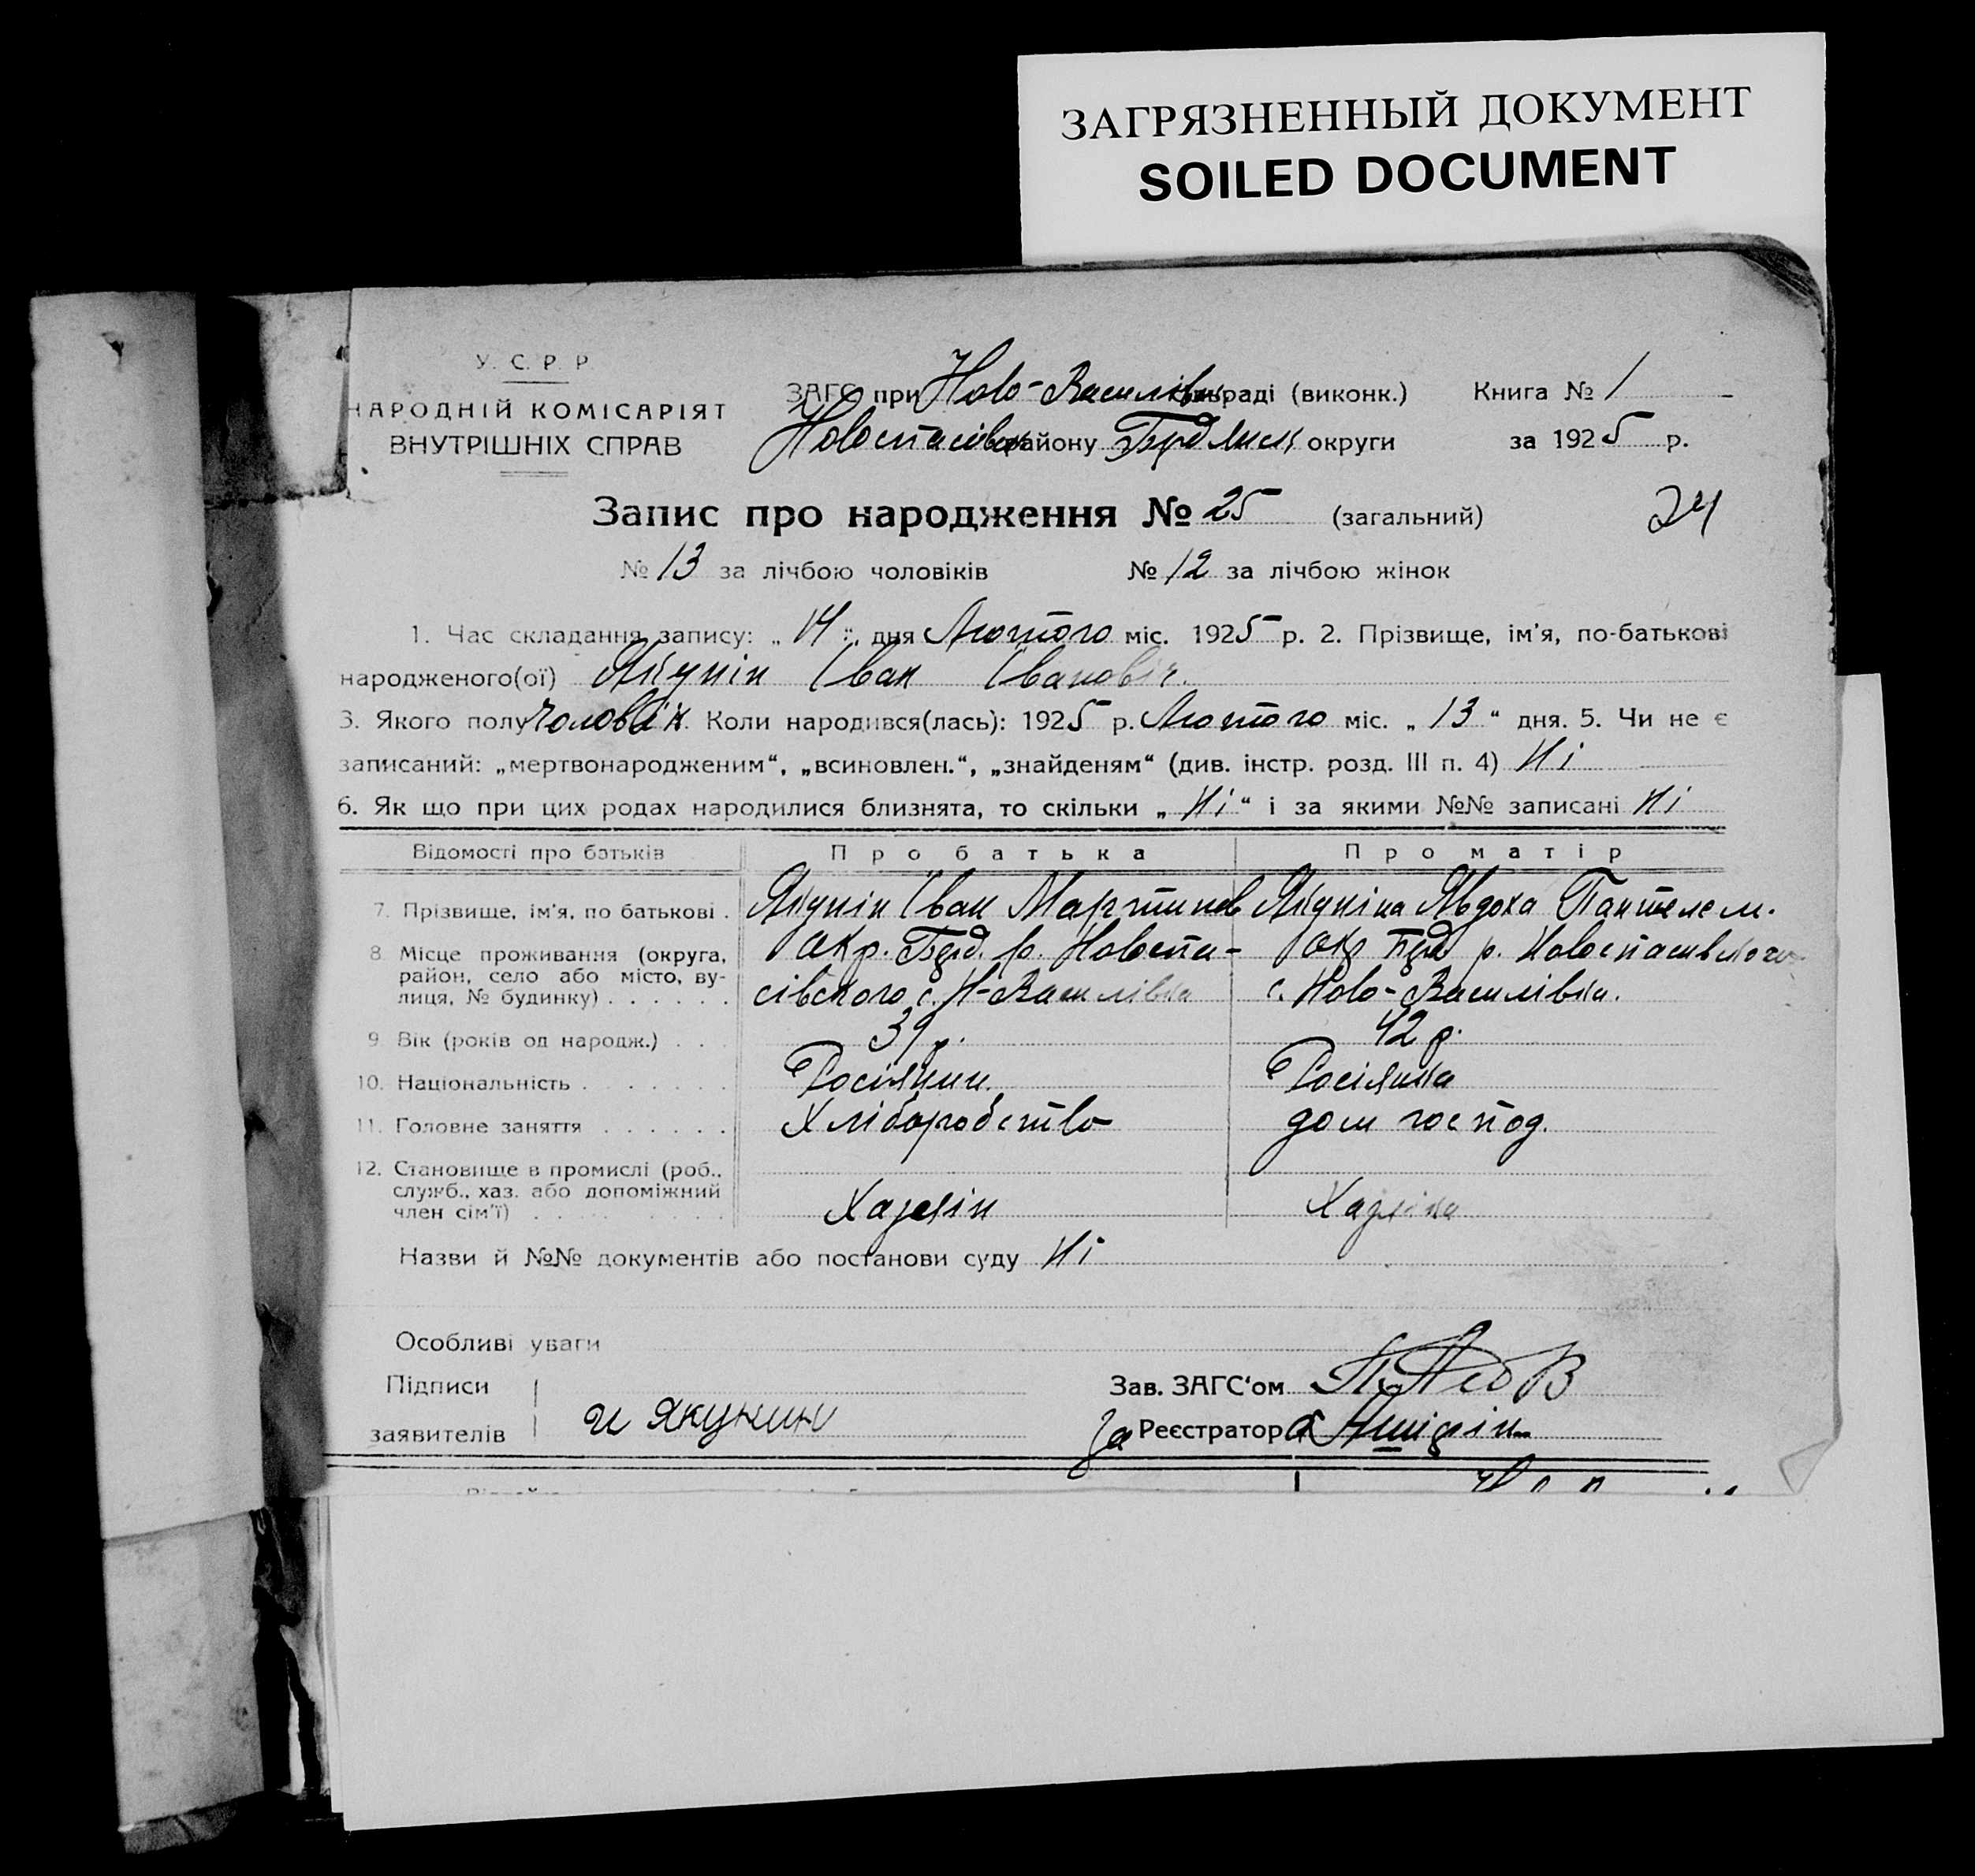 ЗАГРЯЗНЕННЫЙ ДОКУМЕНТ
SOILED DOCUMENT
У. С. Р. Р.
НАРОДНІЙ КОМІСАРІЯТ
ВНУТРІШНІХ СПРАВ
ЗАГС при Ново-Василівк раді (виконк.) Книга № 1
Новоспасівськ району Бердянськ округи за 1925 р.
Запис про народження № 25 (загальний) 24
№ 13 за лічбою чоловіків № 12 за лічбою жінок
1. Час складання запису: „ 14 " дня Лютого міс. 1925 р. 2. Прізвище, ім'я, по-батькові
народженого(ої) Якунін Іван Іванович.
3. Якого полу Чоловік. Коли народився(лась): 1925 р. Лютого міс. „ 13 “ дня. 5. Чи не є
записаний: „мертвонародженим“, „всиновлен.“, „знайденям“ (див. інстр. розд. III п. 4) Ні
6. Як що при цих родах народилися близнята, то скільки „ Ні “ і за якими №№ записані Ні
Відомості про батьків Про батька Про матір
7. Прізвище, ім'я, по батькові . Якунін Іван Мартинов Якуніна Явдоха Пантелем.
8. Місце проживання (округа, Окр. Берд. р. Новоспа- Окр Берд р. Новоспасівского
район, село або місто, ву-
лиця, № будинку) . . . . . . сівского с. Н-Василівка с. Ново-Василівка.
9. Вік (років од народж.) . . . 39 р. 42 р.
10. Національність . . . . . . Росіянин. Росіянка
11. Головне заняття . . . . . . Хліборобство дом господ.
12. Становище в промислі (роб.,
служб., хаз. або допоміжний
член сім'ї) . . . . . . . Хазяін Хазяіка
Назви й №№ документів або постанови суду Ні
Особливі уваги
Підписи Зав. ЗАГС'ом
заявителів и якунин За Реєстратор